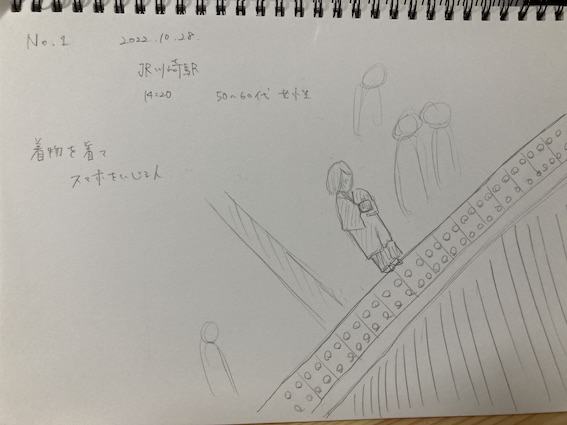 No.1 2022.10.28.
JR川崎駅
14:20 50~60代 女性
着物を着て
スマホをいじる人